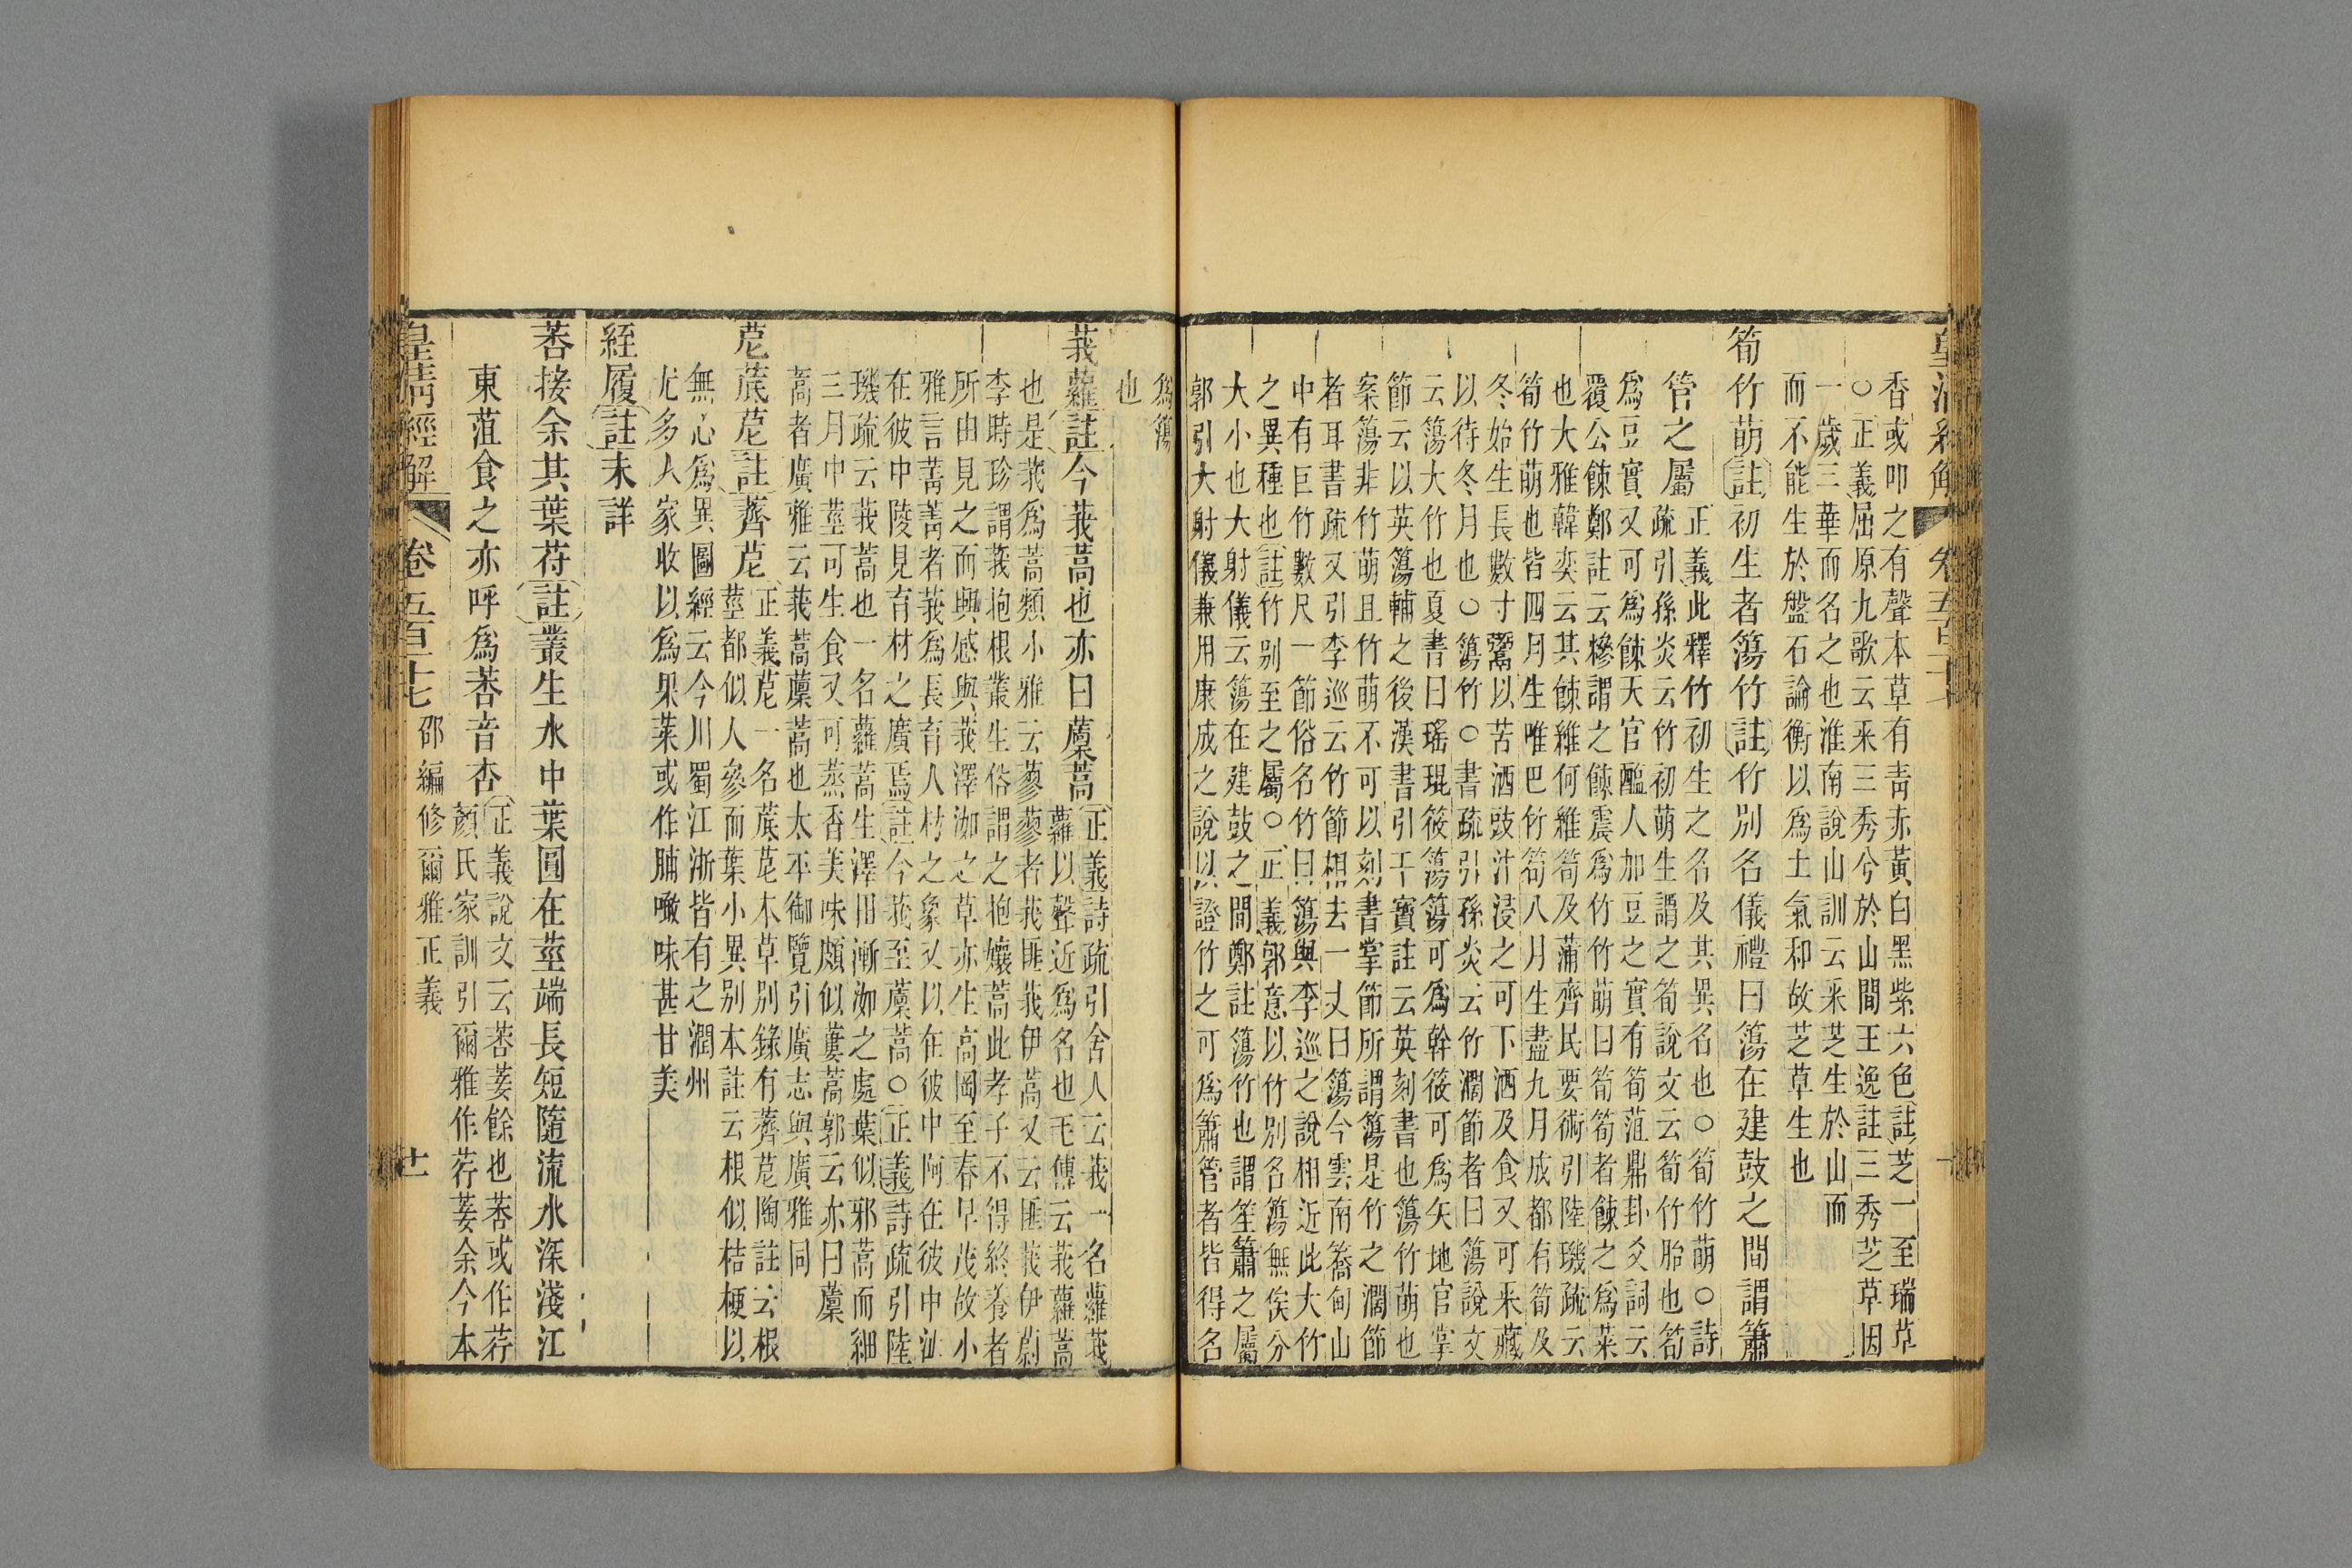 香或叩之有聲本草有靑赤黃白黑紫六色註芝一至瑞草
○正義屈原九歌云采三秀兮於山間王逸註三秀芝草因
一歲三華而名之也淮南說山訓云采芝生於山而
而不能生於盤石論衡以爲土氣和故芝草生也
筍竹萌註初生者簜竹註竹別名儀禮曰簜在建鼓之間謂簫
管之屬正義此釋竹初生之名及其異名也○筍竹萌○詩
疏引孫炎云竹初萌生謂之筍說文云筍竹胎也筍
爲豆實又可爲餗天官醢人加豆之實有筍菹鼎卦爻詞云
覆公餗鄭註云糝謂之餗震爲竹竹萌曰筍筍者餗之爲菜
也大雅韓奕云其餗維何維筍及蒲齊民要術引陸璣疏云
筍竹萌也皆四月生唯巴竹筍八月生盡九月成都有筍及
冬始生長數寸鬻以苦酒豉汁浸之可下酒及食又可采藏
以待冬月也○簜竹○書疏引孫炎云竹濶節者曰簜說文
云簜大竹也夏書曰瑤琨筱簜簜可爲幹筱可爲矢地官掌
節云以英簜輔之後漢書引干寶註云英刻書也簜竹萌也
案簜非竹萌且竹萌不可以刻書掌節所謂簜是竹之濶節
者耳書疏又引李巡云竹節相去一丈曰簜今雲南喬甸山
中有巨竹數尺一節俗名竹曰簜與李巡之說相近此大竹
之異種也註竹別至之屬○正義郭意以竹別名簜無俟分
大小也大射儀云簜在建鼓之間鄭註簜竹也謂笙簫之屬
郭引大射儀兼用康成之說以證竹之可爲簫管者皆得名
爲簜
也
莪蘿註今莪蒿也亦曰䕲蒿正義詩疏引舍人云莪一名蘿莪
蘿以聲近爲名也毛傳云莪蘿蒿
也是莪爲蒿類小雅云蓼蓼者莪匪莪伊蒿又云匪莪伊蔚
李時珍謂莪抱根叢生俗謂之抱孃蒿此孝子不得終養者
所由見之而興感與莪澤泇之草亦生高岡至春早茂故小
雅言菁菁者莪爲長育人材之象又以在彼中阿在彼中沚
在彼中陵見育材之廣焉註今莪至䕲蒿○正義詩疏引陸
璣疏云莪蒿也一名蘿蒿生澤田漸泇之處葉似邪蒿而細
三月中莖可生食又可蒸香美味頗似蔞蒿郭云亦曰䕲
蒿者廣雅云莪蒿䕲蒿也太平御覽引廣志與廣雅同
苨菧苨註薺苨正義苨一名菧苨本草別錄有薺苨陶註云根
莖都似人參而葉小異別本註云根似桔梗以
無心爲異圖經云今川蜀江浙皆有之潤州
尤多人家收以爲果菜或作脯噉味甚甘美
絰履註未詳
莕接余其葉苻註叢生水中葉圓在莖端長短隨流水深淺江
東菹食之亦呼爲莕音杏正義說文云莕菨餘也莕或作荇
顏氏家訓引爾雅作荇菨余今本
皇淸經解 卷五百十七 邵編修爾雅正義 廿一